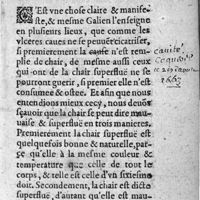 C'Est vne chose claire & manife-
ste, & mesme Galien l'enseigne
en plusieurs lieux, que comme les
vlceres caues ne se peuuēt cicatriser,
si premierement la cauité n'est rem-
plie de chair, de mesme aussi ceux
qui ont de la chair superfluë ne se
pourront guerir, si premier elle n'est
consumee & ostee. Et afin que nous en-
tendions mieux cecy, nous deuōs
sçauoir que la chair se peut dire mau-
uaise & superfluë en trois manieres.
Premierement la chair superfluë est
quelquefois bonne & naturelle, par-
ce qu'elle à la mesme couleur &
temperature que celle de tout le
corps, & telle est celle d'vn sixiesme
doit. Secondement, la chair est dicte
superfluë, d'autant qu'elle est mau-
cauité